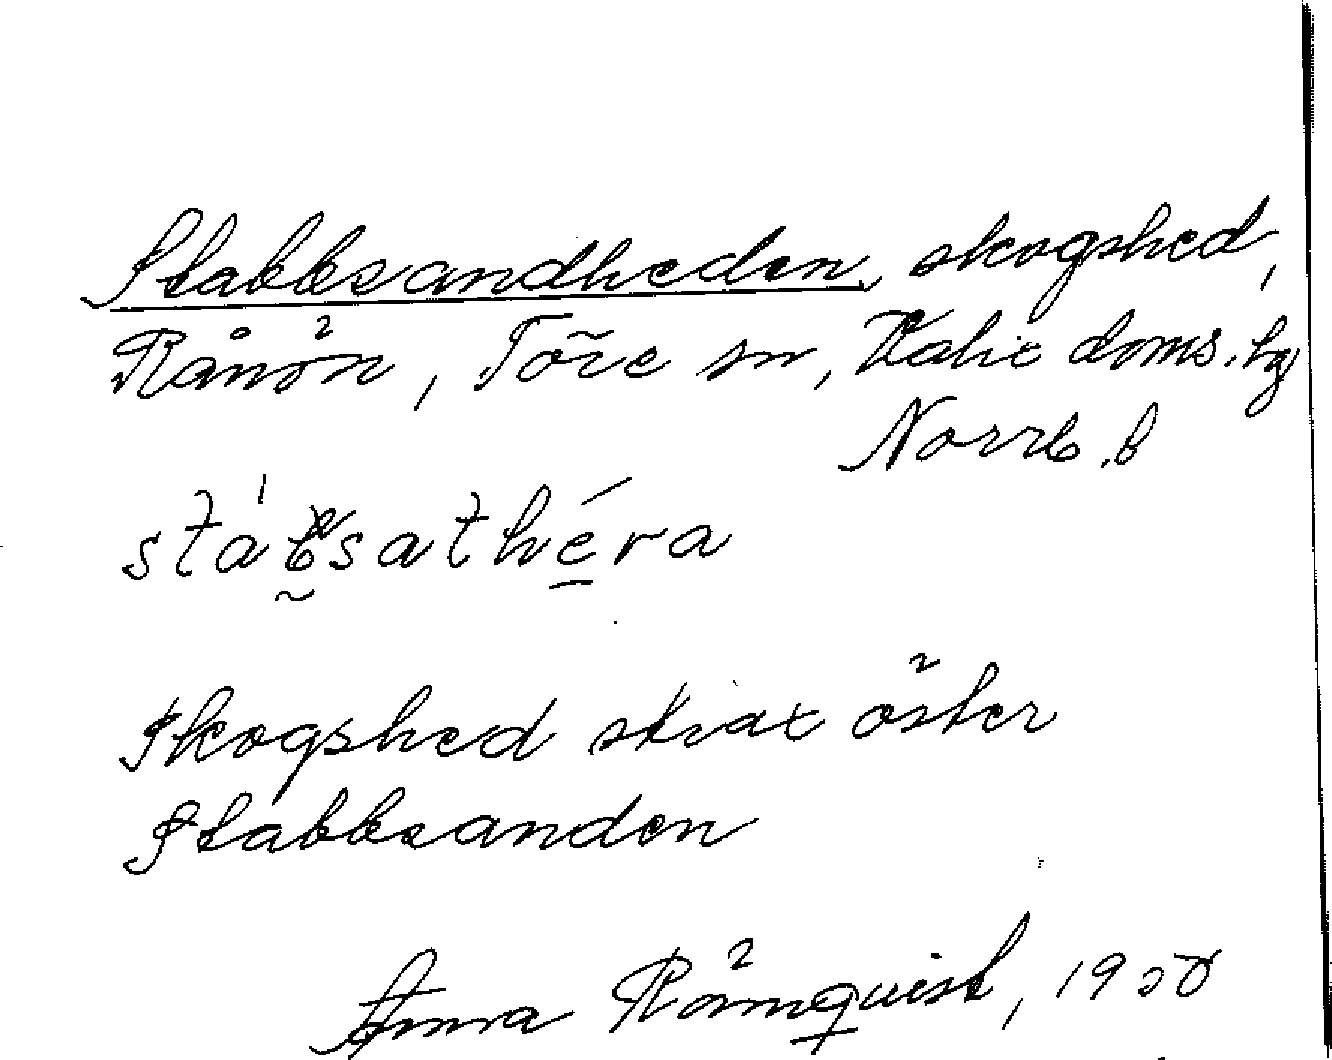 Stabbsandheden, skogshed,
Rånön, Töre sn, Kalix doms. hg
Norrb. b
skogshed strax öster
Stabbsanden
Anna Römquist, 1930